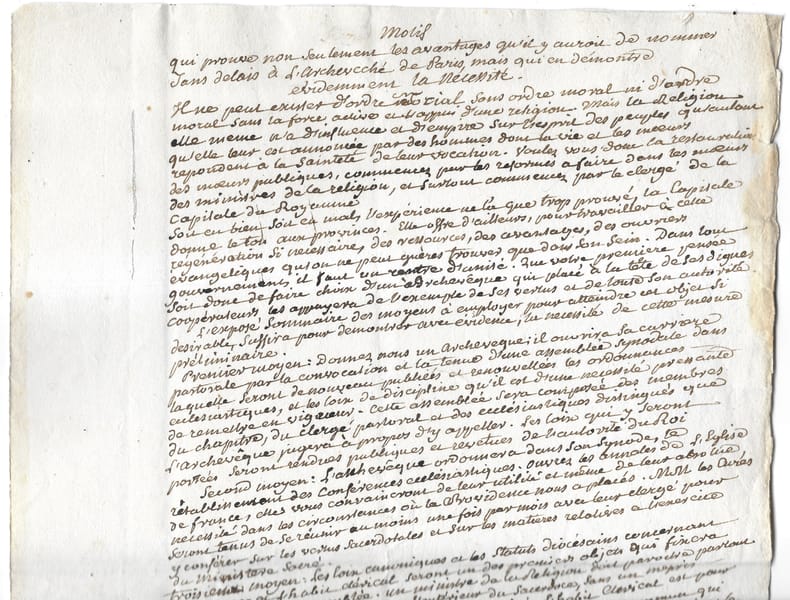 Motif
qui prouve non seulement les avantages qu'il y auroit de nommer
sans delais à L'Archevêché de Paris, mais qui en démontre
évidemment la Nécessité.
Il ne peut exister d'ordre social sans ordre moral ni d'ordre
moral sans la force active et l'appui d'une religion. Mais la Religion
elle même n'a d'influence et d'empire sur l'esprit des peuples qu'autant
qu'elle leur est annoncée par des hommes dont la vie et les mœurs
repondent à la Sainteté de leur vocation. Voulez vous donc la restauration
des mœurs publiques, commencez par les reformes a faire dans les mœurs
des ministres de la religion, et surtout commencez par le clergé de la
Capitale du Royaume
Soit en bien, soit en mal, l'expérience ne l'a que trop prouvé, la Capitale
donne le ton aux provinces. Elle offre d'ailleurs, pour travailler à cette
regénération si necessaire, des ressources, des avantages, des ouvriers
evangeliques qu'on ne peut guères trouver que dans son sein. Dans tout
gouvernement, il faut un centre d'unité. Que votre première pensée
soit donc de faire choix d'un Archevêque qui placé à la tête de ses dignes
coopérateurs, les appuyera de l'exemple de ses vertus et de toute son autorité.
L'exposé sommaire des moyens à employer pour atteindre cet objet si
desirable, suffira pour demontrer avec evidence, la nécessité de cette mesure
préliminaire.
Premier moyen: donnez nous un Archevêque; il ouvrira sa carriere
pastorale par la convocation et la tenue d'une assemblée synodale dans
laquelle seront de nouveau publiées et renouvellées les ordonnances
ecclésiastiques, et les loix de discipline qu'il est d'une nécessité pressante
de remettre en vigueur. Cette assemblée sera composée des membres
du chapitre, du clergé pastoral et des ecclésiastiques distingués que
L'Archevêque jugera à propos d'y appeller. Les loix qui y seront
portées seront rendues publiques et revetues de l'autorité du Roi
Second moyen: L'archevêque ordonnera dans son Synode, le
rétablissement des Conférences ecclésiastiques. Ouvrez les annales de L'Eglise
de france, elles vous convaincront de leur utilité et même de leur absolue
nécessité dans les circonstances où la Providence nous a placés. MM les Curés
seront tenus de se réunir au moins une fois par mois avec leur clergé pour
y conférer sur les vertus Sacerdotales et sur les matieres relatives a l'exercice
du Ministere Sacré.
troisieme moyen: les loix canoniques et les Statuts diocésains concernant
l'habit clérical seront un des premiers objets qui fixera
un ministre de la Religion doit paroitre partout